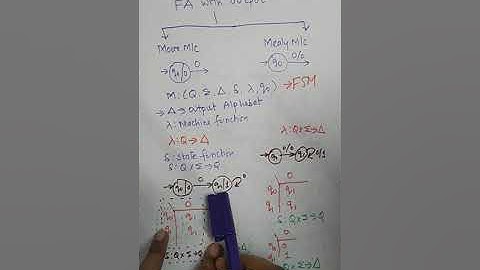 FA with output
Moore M/c
Mealy M/c
q0|0 0
q0 0/0
M: (Q, Σ, Δ, δ, λ, q0) → FSM
→ Δ → output Alphabet
λ: Machine function
λ: Q→Δ
δ: state function
δ: Q×Σ→Q
λ: Q×Σ→Δ
q0 0/0 q1 0/1
q0|0 0 q1|1 0
0
q0 q1
q1 q1
δ: Q×Σ→Q
0
q0 q1
q1 q1
δ: Q×Σ→Q
0
q0 0
q1 1